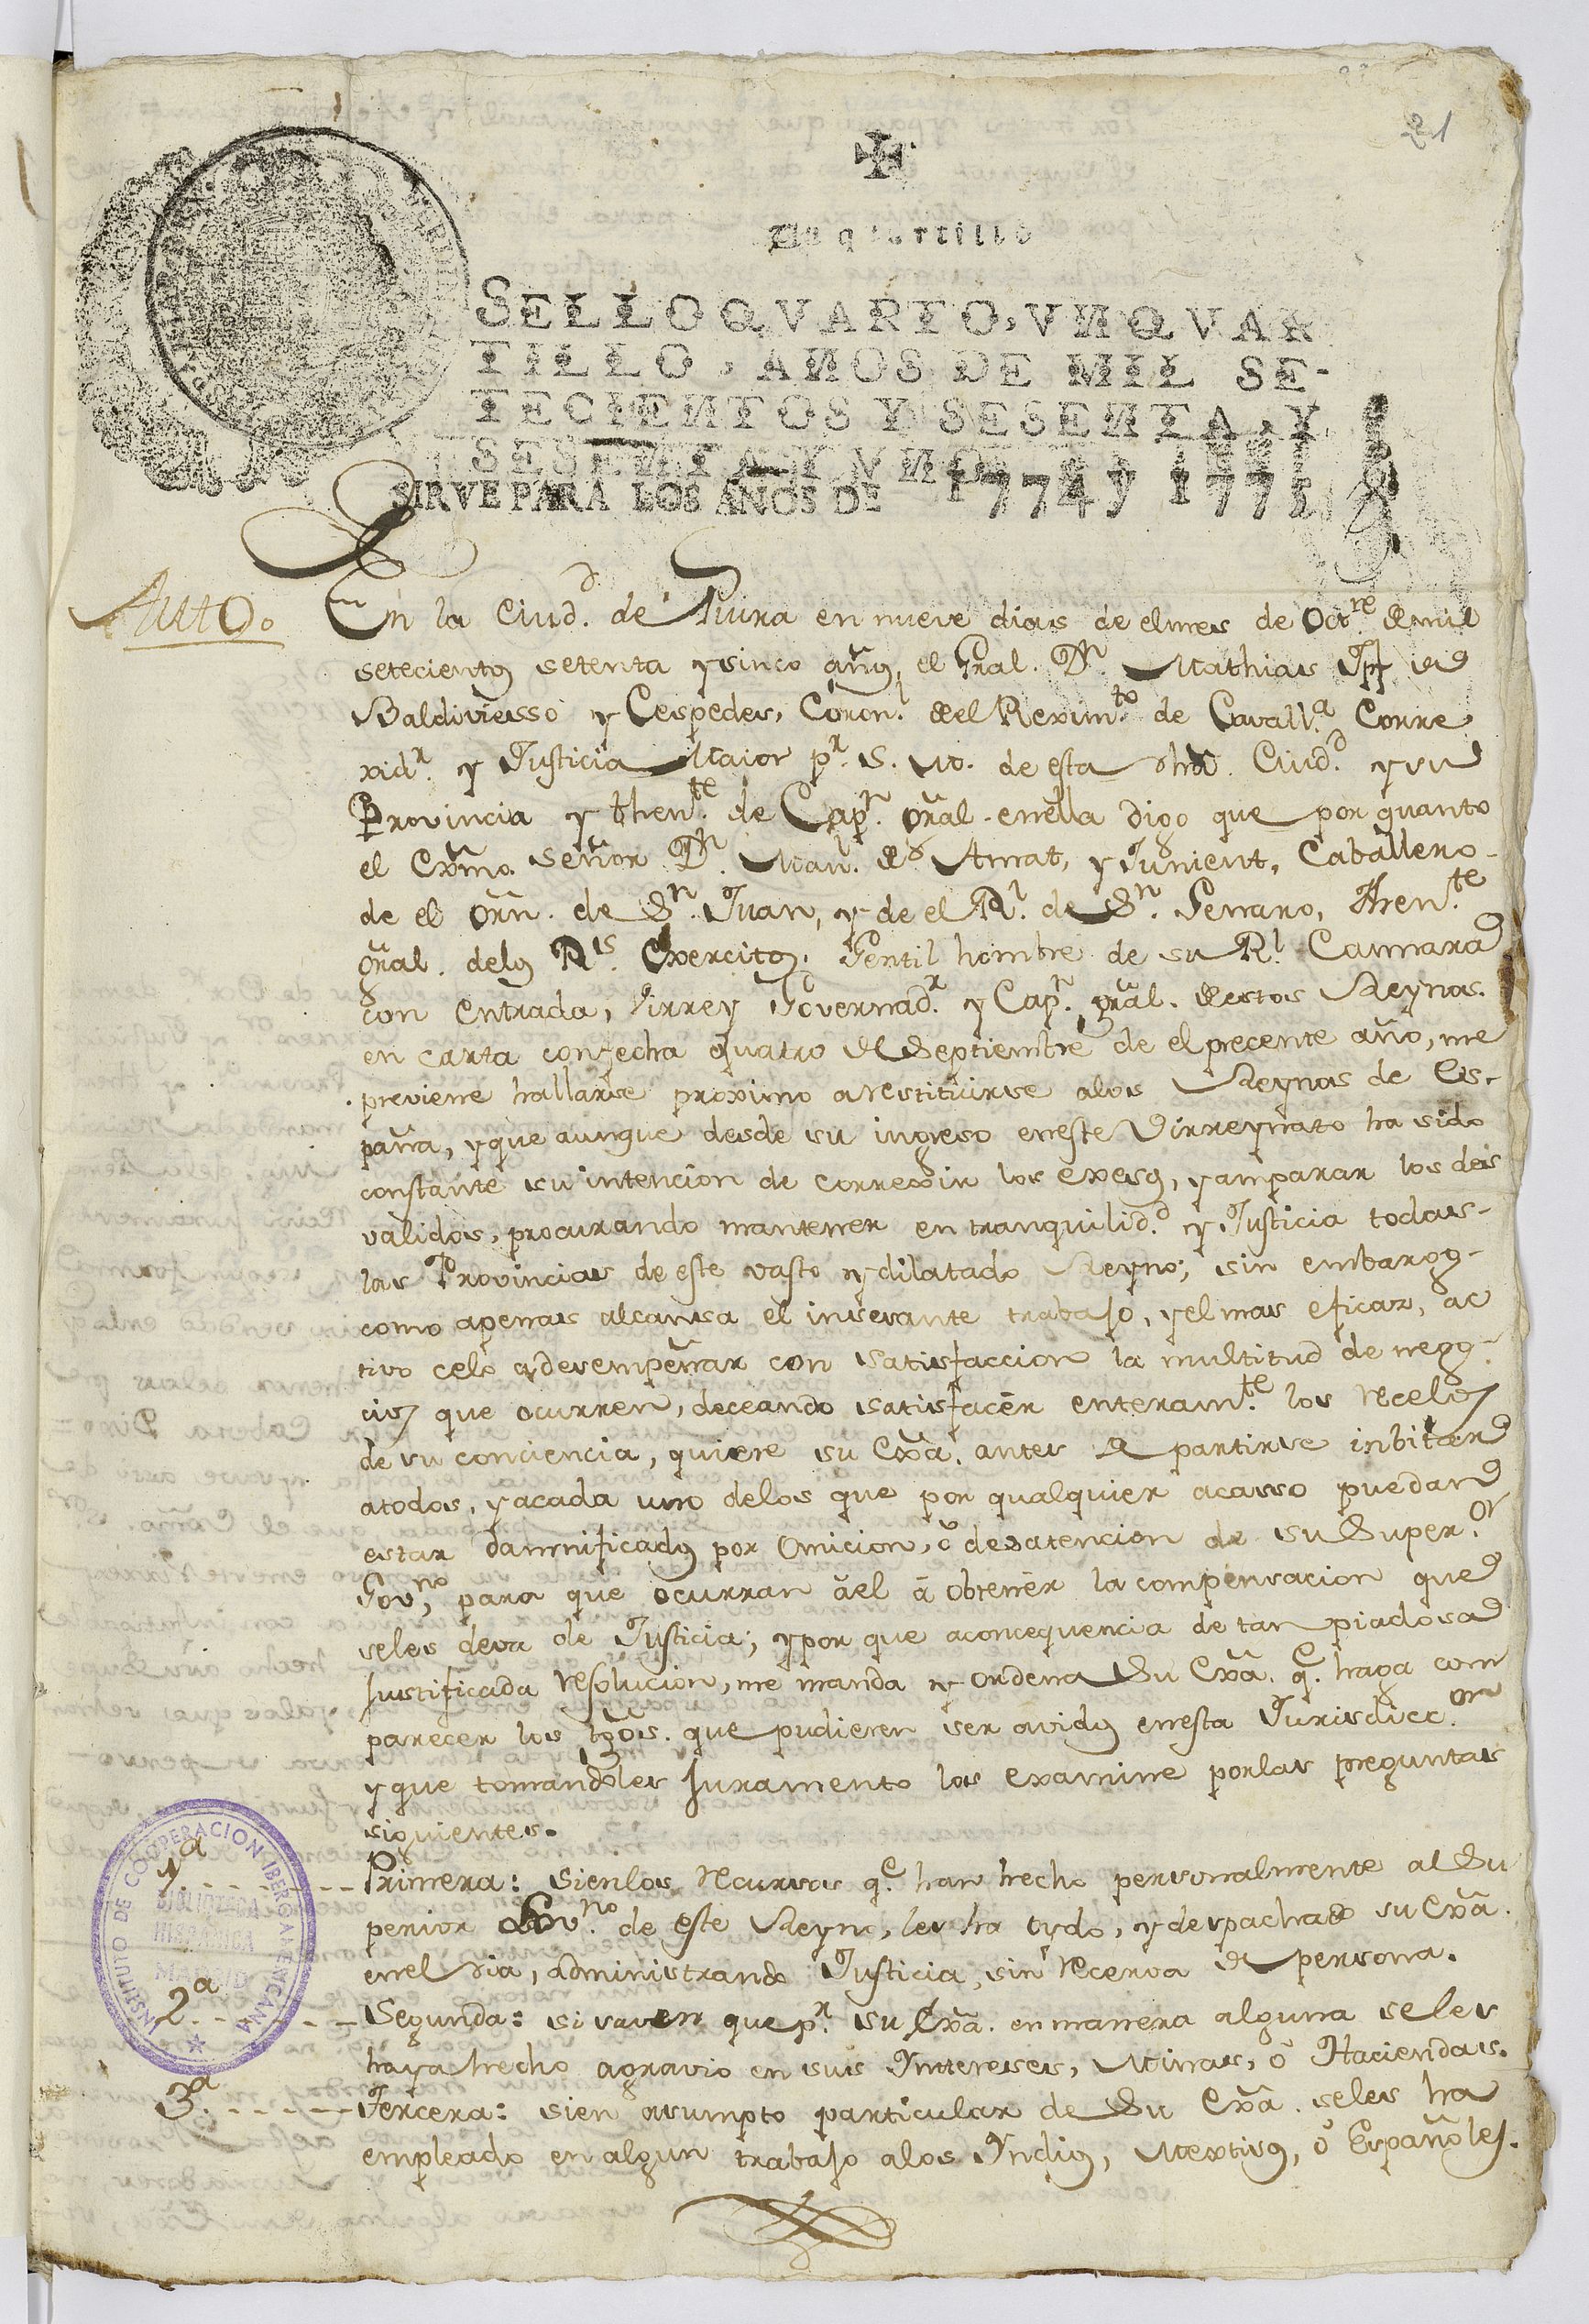 21
Un quartillo
SELLO QVARTO, VN QVAR
TILLO, AÑOS DE MIL SE-
TECIENTOS Y SESENTA, Y
SESENTA Y VNO.
SIRVE PARA LOS AÑOS DE 1774 y 1775
Auto.
En la Ciud.d de Piura en nueve dias de el mes de Oct.re de mil
setecientos setenta y sinco años, el Gral. Dn. Mathias Jph de
Baldiviesso y Cespedes, Coron.l de el Rexim.to de Cavall.a Corre
xid.r y Justicia Maior p.r S. M. de esta dha. Ciud.d y su
Provincia y Then.te de Cap.n Gral. en ella digo que por quanto
el Exmo. Señor Dn. Man.l de Amat, y Junient, Caballero
de el Orn. de Sn. Juan, y de el R.l de Sn. Genaro, Then.te
Gral. de los R.s Exercitos, Gentil hombre de su R.l Camara
con entrada, Virrey Governad.r y Cap.n Gral. de estos Reynos.
en carta con fecha quatro de Septiembre de el precente año, me
previene hallarse proximo a restituirse alos Reynos de Es-
paña, y que aunque desde su ingreso en este Virreynato ha sido
constante su intencion de correxir los exesos, y amparar los des
validos, procurando mantener en tranquilid.d y Justicia todas
las Provincias de este vasto y dilatado Reyno; sin embargo
como apenas alcansa el insesante trabajo, y el mas eficaz, ac
tivo celo a desempeñar con satisfaccion la multitud de nego
cios que ocurren, deceando satisfacer enteram.te los recelos
de su conciencia, quiere su Exa. antes de partirse inbitar
a todos, y a cada uno delos que por qualquier acasso puedan
estar damnificados por omicion, ó desatencion de su Super.or
Gov.no, para que ocurran ael á obtener la compensacion que
seles deva de Justicia; y por que aconcequencia de tan piadosa
justificada resolucion, me manda y ordena Su Exa. q.e haga com
parecer los tgos. que pudieren ser avidos en esta Jurisdicc.on
y que tomandoles juramento los examine por las preguntas
siguientes.
1.a Primera: si en los recursos q.e han hecho personalmente al Su
perior Gov.no de este Reyno, les ha oydo, y despachado su Exa.
en el dia, administrando Justicia, sin recerva de persona.
2.a Segunda: si saven que p.r su Exa. en manera alguna seles
haya hecho agravio en sus Yntereses, Minas, ó Haciendas.
3.a Tercera: si en asumpto particular de Su Exa. seles ha
empleado en algun trabajo alos Yndios, Mextisos, ó Españoles.
INSTITUTO DE COOPERACION IBEROAMERICANA
BIBLIOTECA
HISPANICA
MADRID